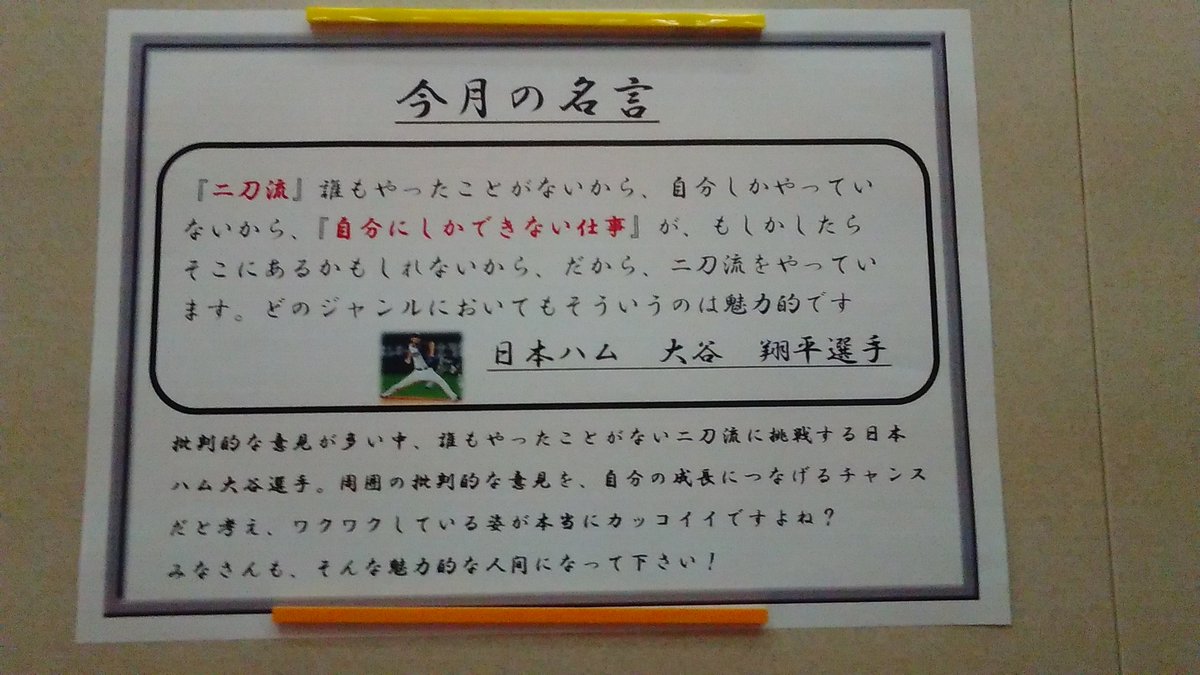 今月の名言
『二刀流』誰もやったことがないから、自分しかやってい
ないから、『自分にしかできない仕事』が、もしかしたら
そこにあるかもしれないから、だから、二刀流をやってい
ます。どのジャンルにおいてもそういうのは魅力的です
日本ハム　大谷　翔平選手
批判的な意見が多い中、誰もやったことがない二刀流に挑戦する日本
ハム大谷選手。周囲の批判的な意見を、自分の成長につなげるチャンス
だと考え、ワクワクしている姿が本当にカッコイイですよね？
みなさんも、そんな魅力的な人間になって下さい！